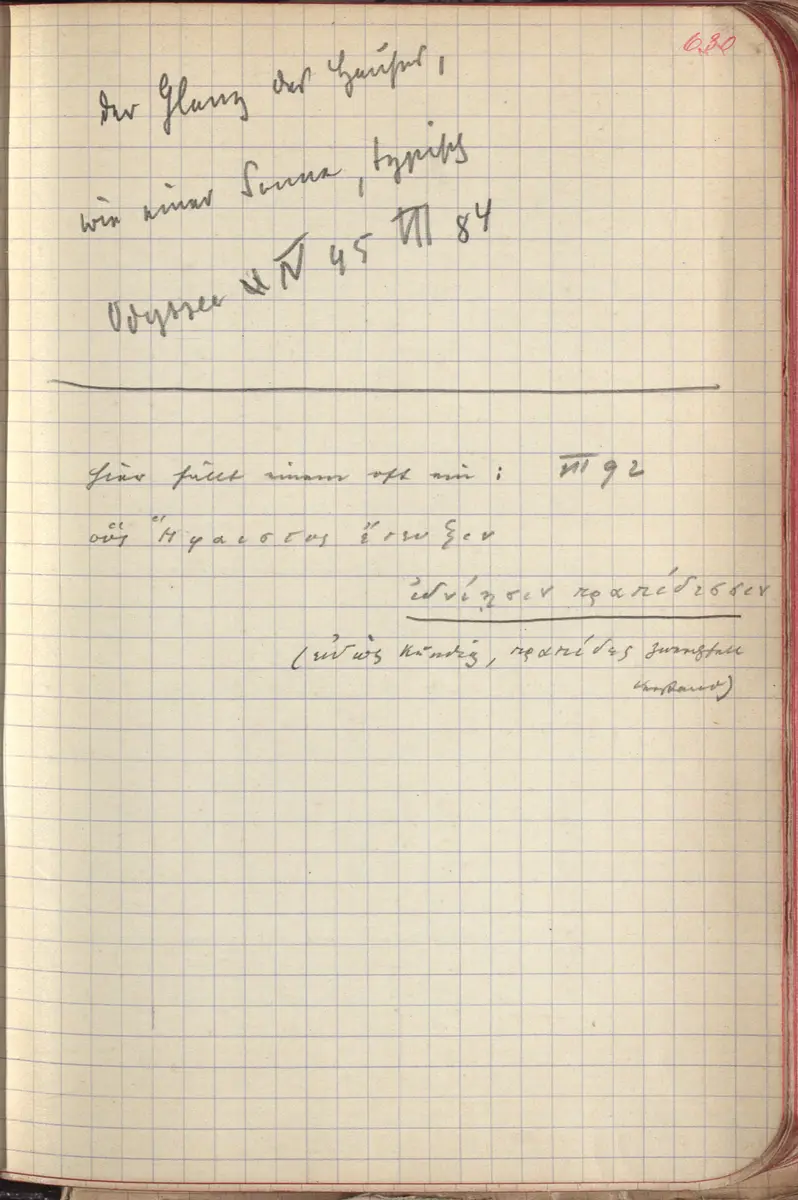 630
der Glanz der Häuser,
wie einer Sonne, typisch
Odyssee IV 45 VII 84
hier fällt einem oft ein: VII 92
οὓς Ἥφαιστος ἔτευξεν
ἰδυίῃσιν πραπίδεσσιν
(εἰδὼς kundig, πραπίδες Zwerchfell
Verstand)